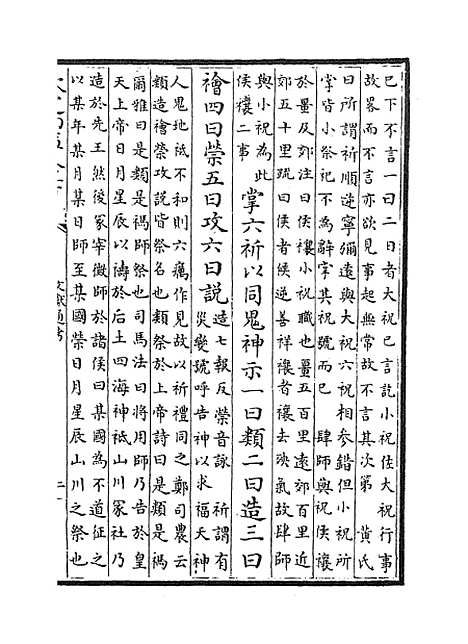 已下不言一曰二曰者大祝已言訖小祝佐大祝行事
故畧而不言亦欲見事起無常故不言其次第 黄氏
曰所謂祈順逆寧彌逺與大祝六祝相参錯但小祝所
掌皆小祭祀不為辭掌其祝號而已 肆師與祝侯禳
於畺及郊注曰侯禳小祝職也畺五百里逺郊百里近
郊五十里䟽曰侯者候迎善祥禳者禳去殃氣故肆師
與小祝為此
侯禳二事
掌六祈以同鬼神示一曰類二曰造三曰
禬四曰禜五曰攻六曰說
造七報反禜音詠 祈謂有
災變號呼告神以求福天神
人鬼地祇不和則六癘作見故以祈禮同之鄭司農云
類造禬禜攻說皆祭名也類祭於上帝詩曰是類是禡
爾雅曰是類是禡師祭也司馬法曰將用師乃告於皇
天上帝日月星辰以禱於后土四海神祇山川冢社乃
造於先王然後冢宰徵師於諸侯曰某國為不道征之
以某年某月某日師至某國禜日月星辰山川之祭也